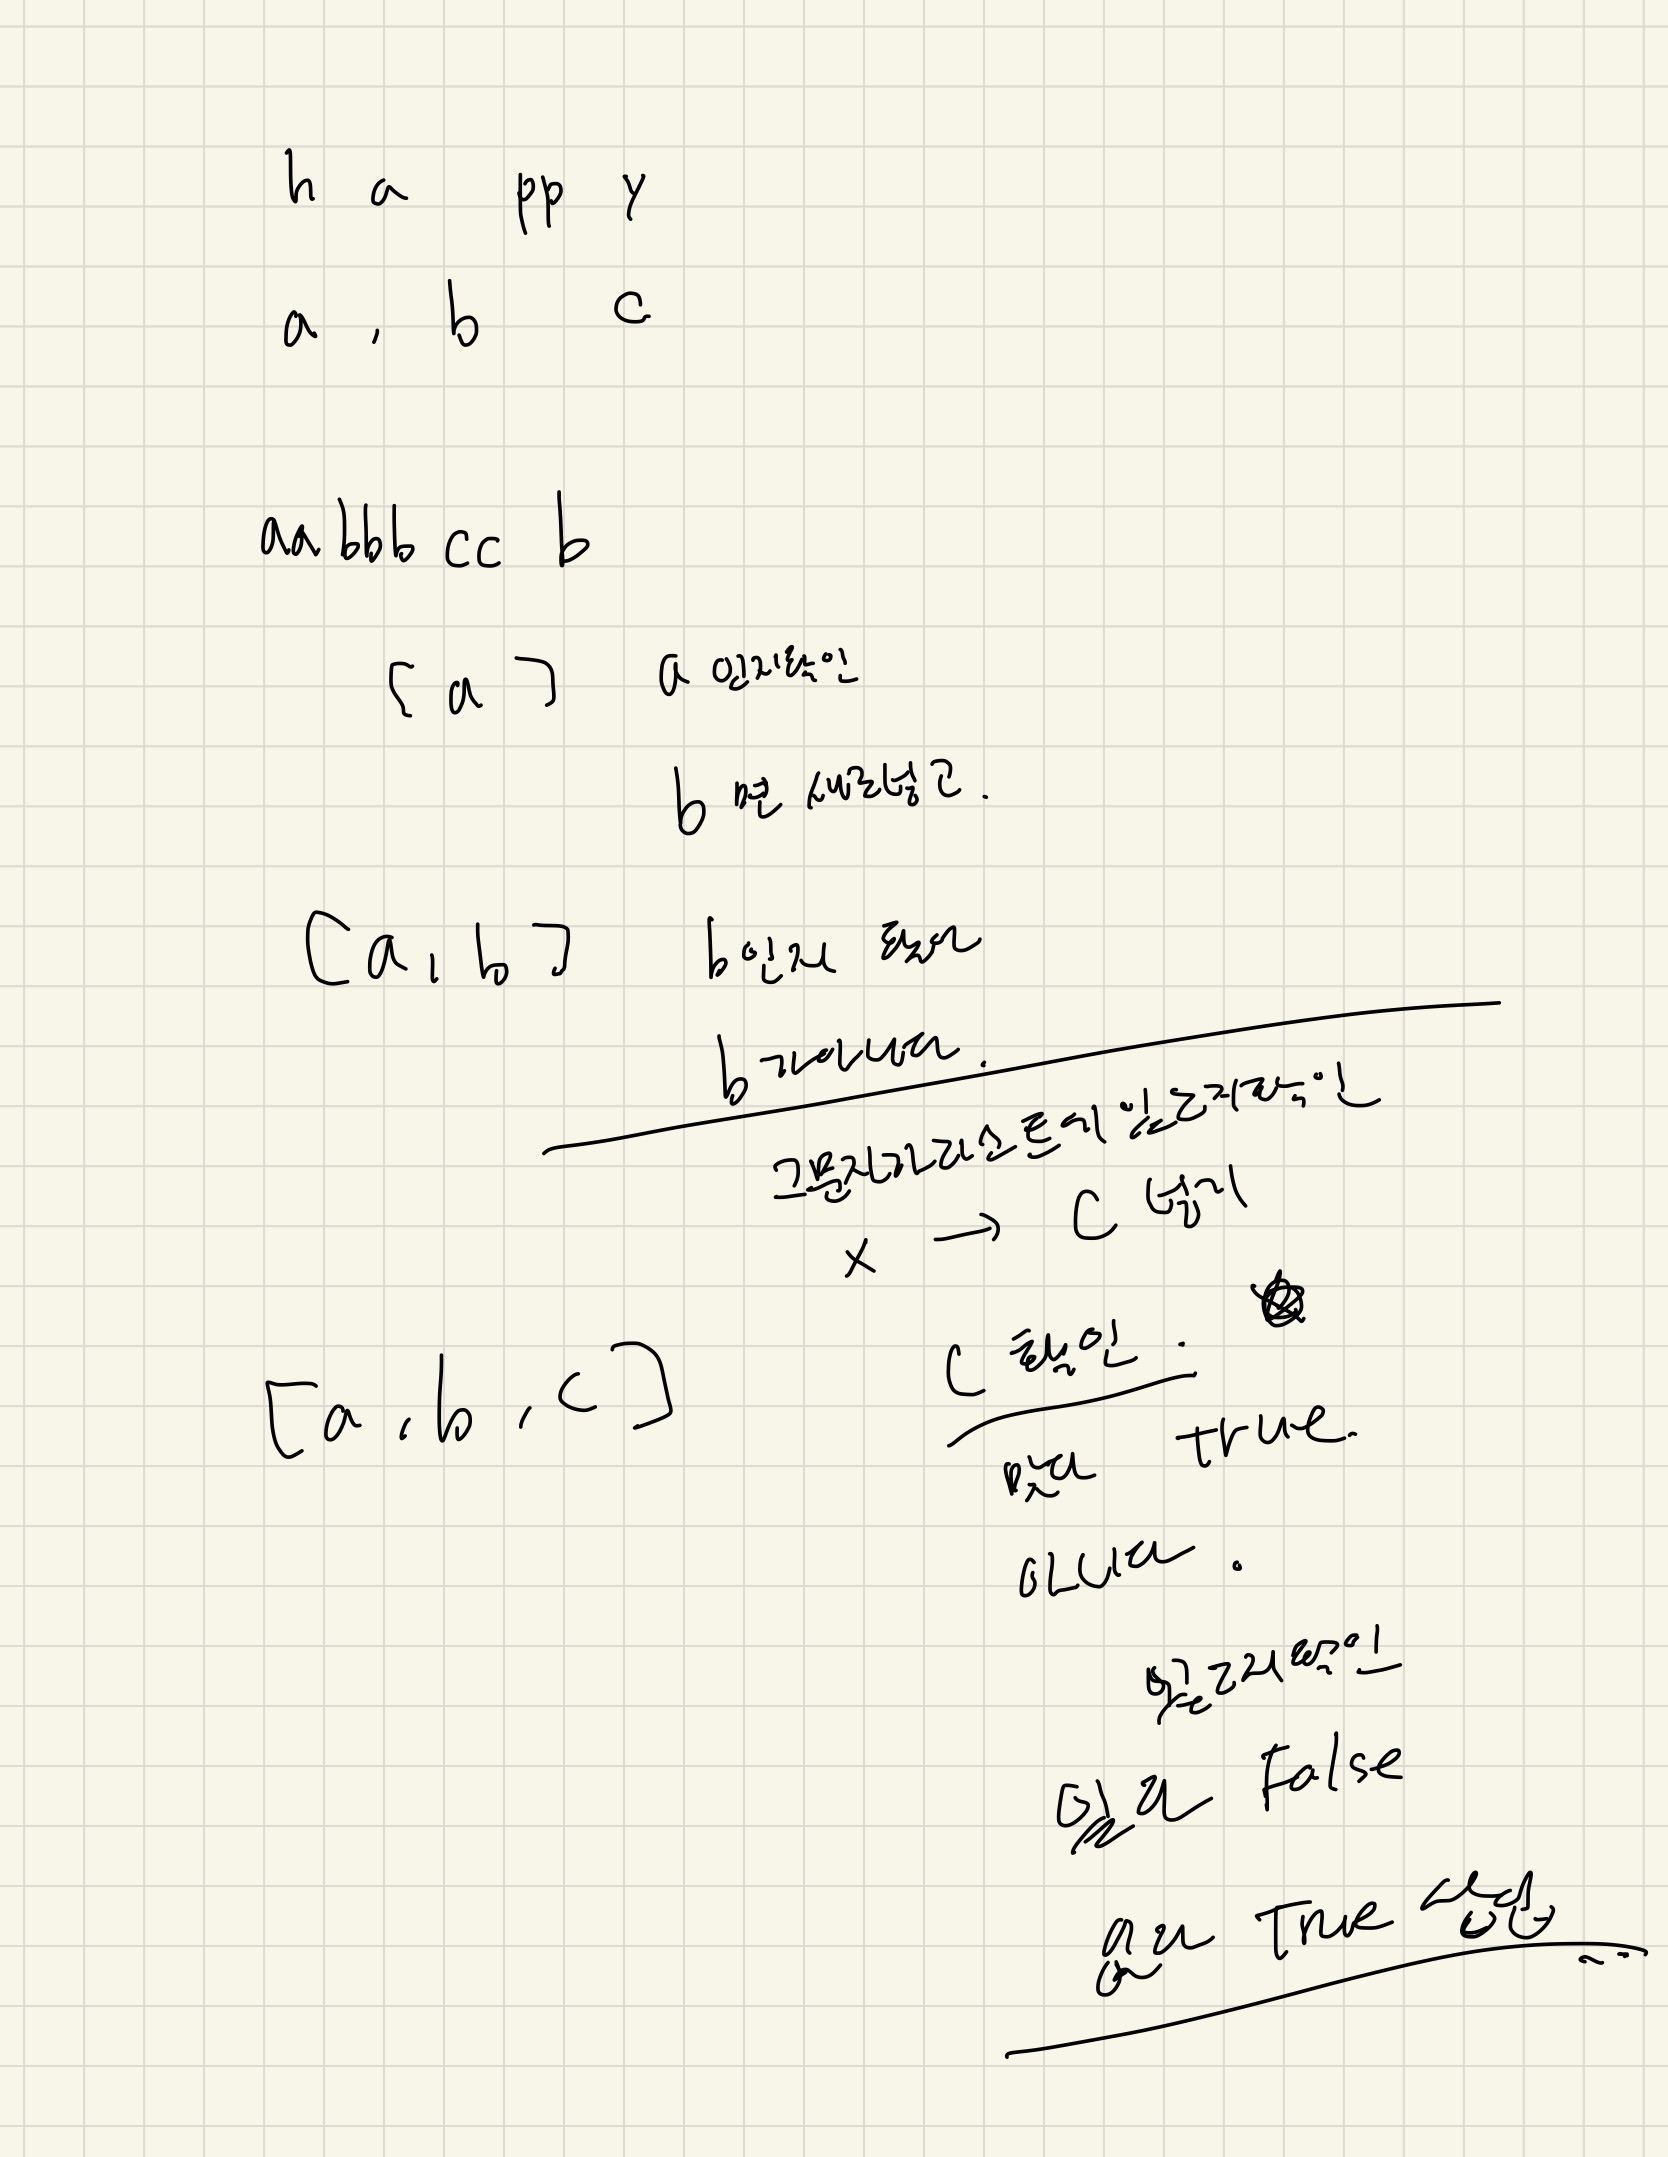 h a pp y
a , b c
aabbb cc b
[ a ] a 인지확인
b 면 새로넣고.
[a, b] b인지 확인
b가아니다.
그문자가리스트에 있는지확인
x → C 넣기
[a, b, c] C 확인.
맞다 true.
아니다.
있는지확인
있다 False
없다 True